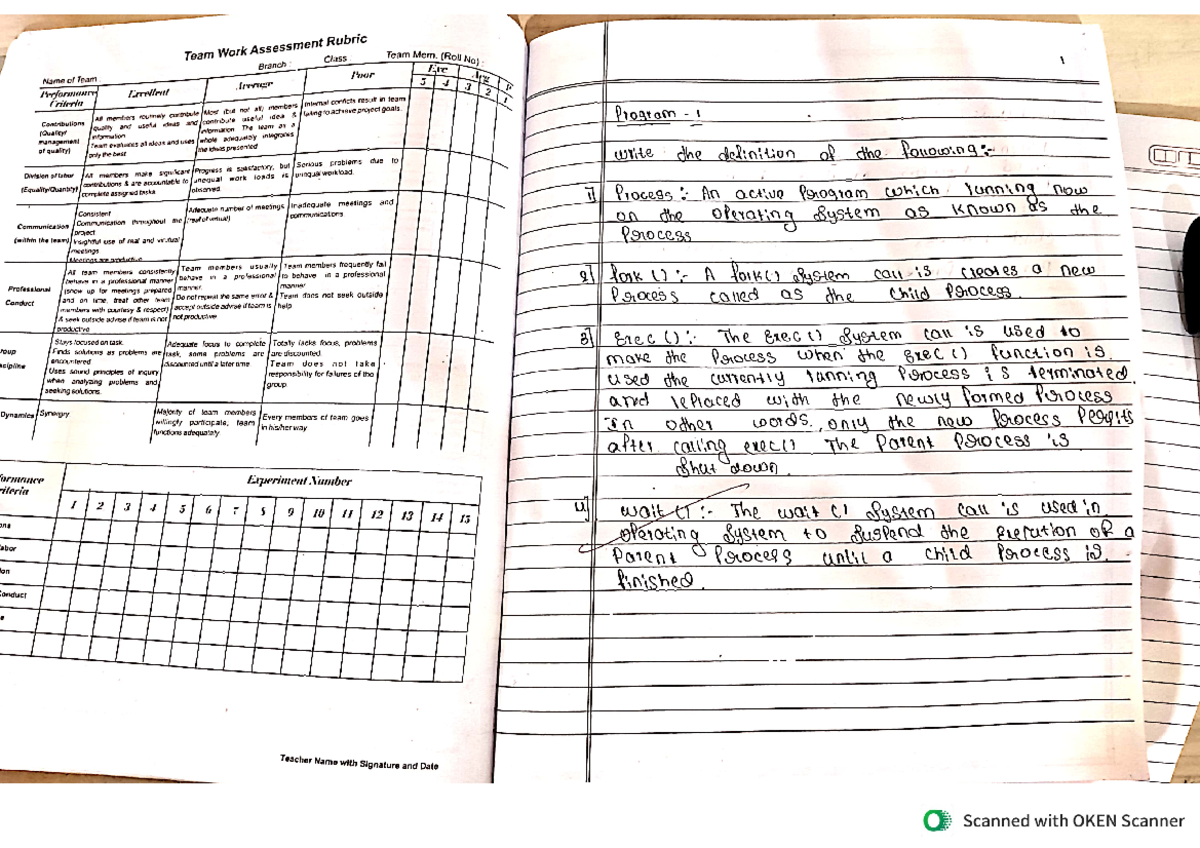 Team Work Assessment Rubric
Branch : Class : Team Mem. (Roll No) :
Name of Team :
Performance Criteria Excellent Average Poor Exc Avg P
5 4 3 2 1
Contributions (Quality/ management of quality)
All members routinely contribute quality and useful ideas and information
Team evaluates all ideas and uses only the best
Most (but not all) members contribute useful idea & information. The team as a whole adequately integrates the ideas presented
Internal conflicts result in team failing to achieve project goals.
Division of labor (Equality/Quantity)
All members make significant contributions & are accountable to complete assigned tasks
Progress is satisfactory, but unequal work loads is observed.
Serious problems due to unequal workload.
Communication (within the team)
Consistent
Communication throughout the project
Insightful use of real and virtual meetings
Meetings are productive
Adequate number of meetings (real of virtual)
Inadequate meetings and communications
Professional Conduct
All team members consistently behave in a professional manner (show up for meetings prepared and on time, treat other team members with courtesy & respect) & seek outside advise if team is not productive
Team members usually behave in a professional manner.
Do not repeat the same error & accept outside advise if team is not productive
Team members frequently fail to behave in a professional manner
Team does not seek outside help
roup scipline
Stays focused on task.
Finds solutions as problems are encountered
Uses sound principles of inquiry when analyzing problems and seeking solutions.
Adequate focus to complete task, some problems are discounted until a later time
Totally lacks focus, problems are discounted.
Team does not take responsibility for failures of the group
Dynamics Synergry.
Majority of team members willingly participate, team functions adequately
Every members of team goes in his/her way
formance riteria Experiment Number
1 2 3 4 5 6 7 8 9 10 11 12 13 14 15
ons
abor
ion
Conduct
e
Teacher Name with Signature and Date
1
Program - 1
Write the definition of the following:-
1] Process :- An active Program which running now
on the operating System as known as the
Process
2] fork () :- A fork() System call is creates a new
Process called as the child Process.
3] Exec () :- The Exec() System call is used to
make the Process when the exec () function is
used the currently running Process is terminated
and replaced with the newly formed Process
In other words, only the new Process Persits
after calling exec() The Parent Process is
Shut down.
4] wait () :- The wait () System call is used in
operating System to Suspend the Exeution of a
Parent Process until a child Process is
finished.
Scanned with OKEN Scanner